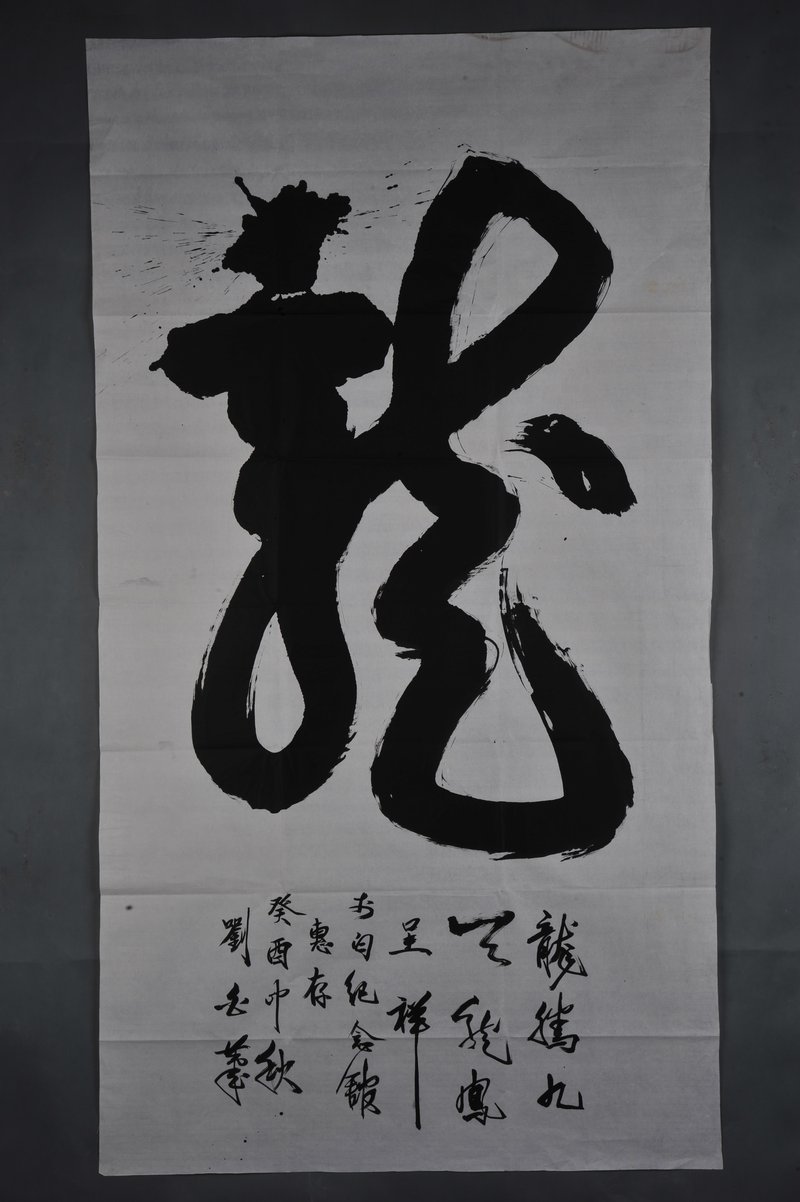 龍
龍騰九
天龍鳳
呈祥
李白纪念館
惠存
癸酉中秋
劉